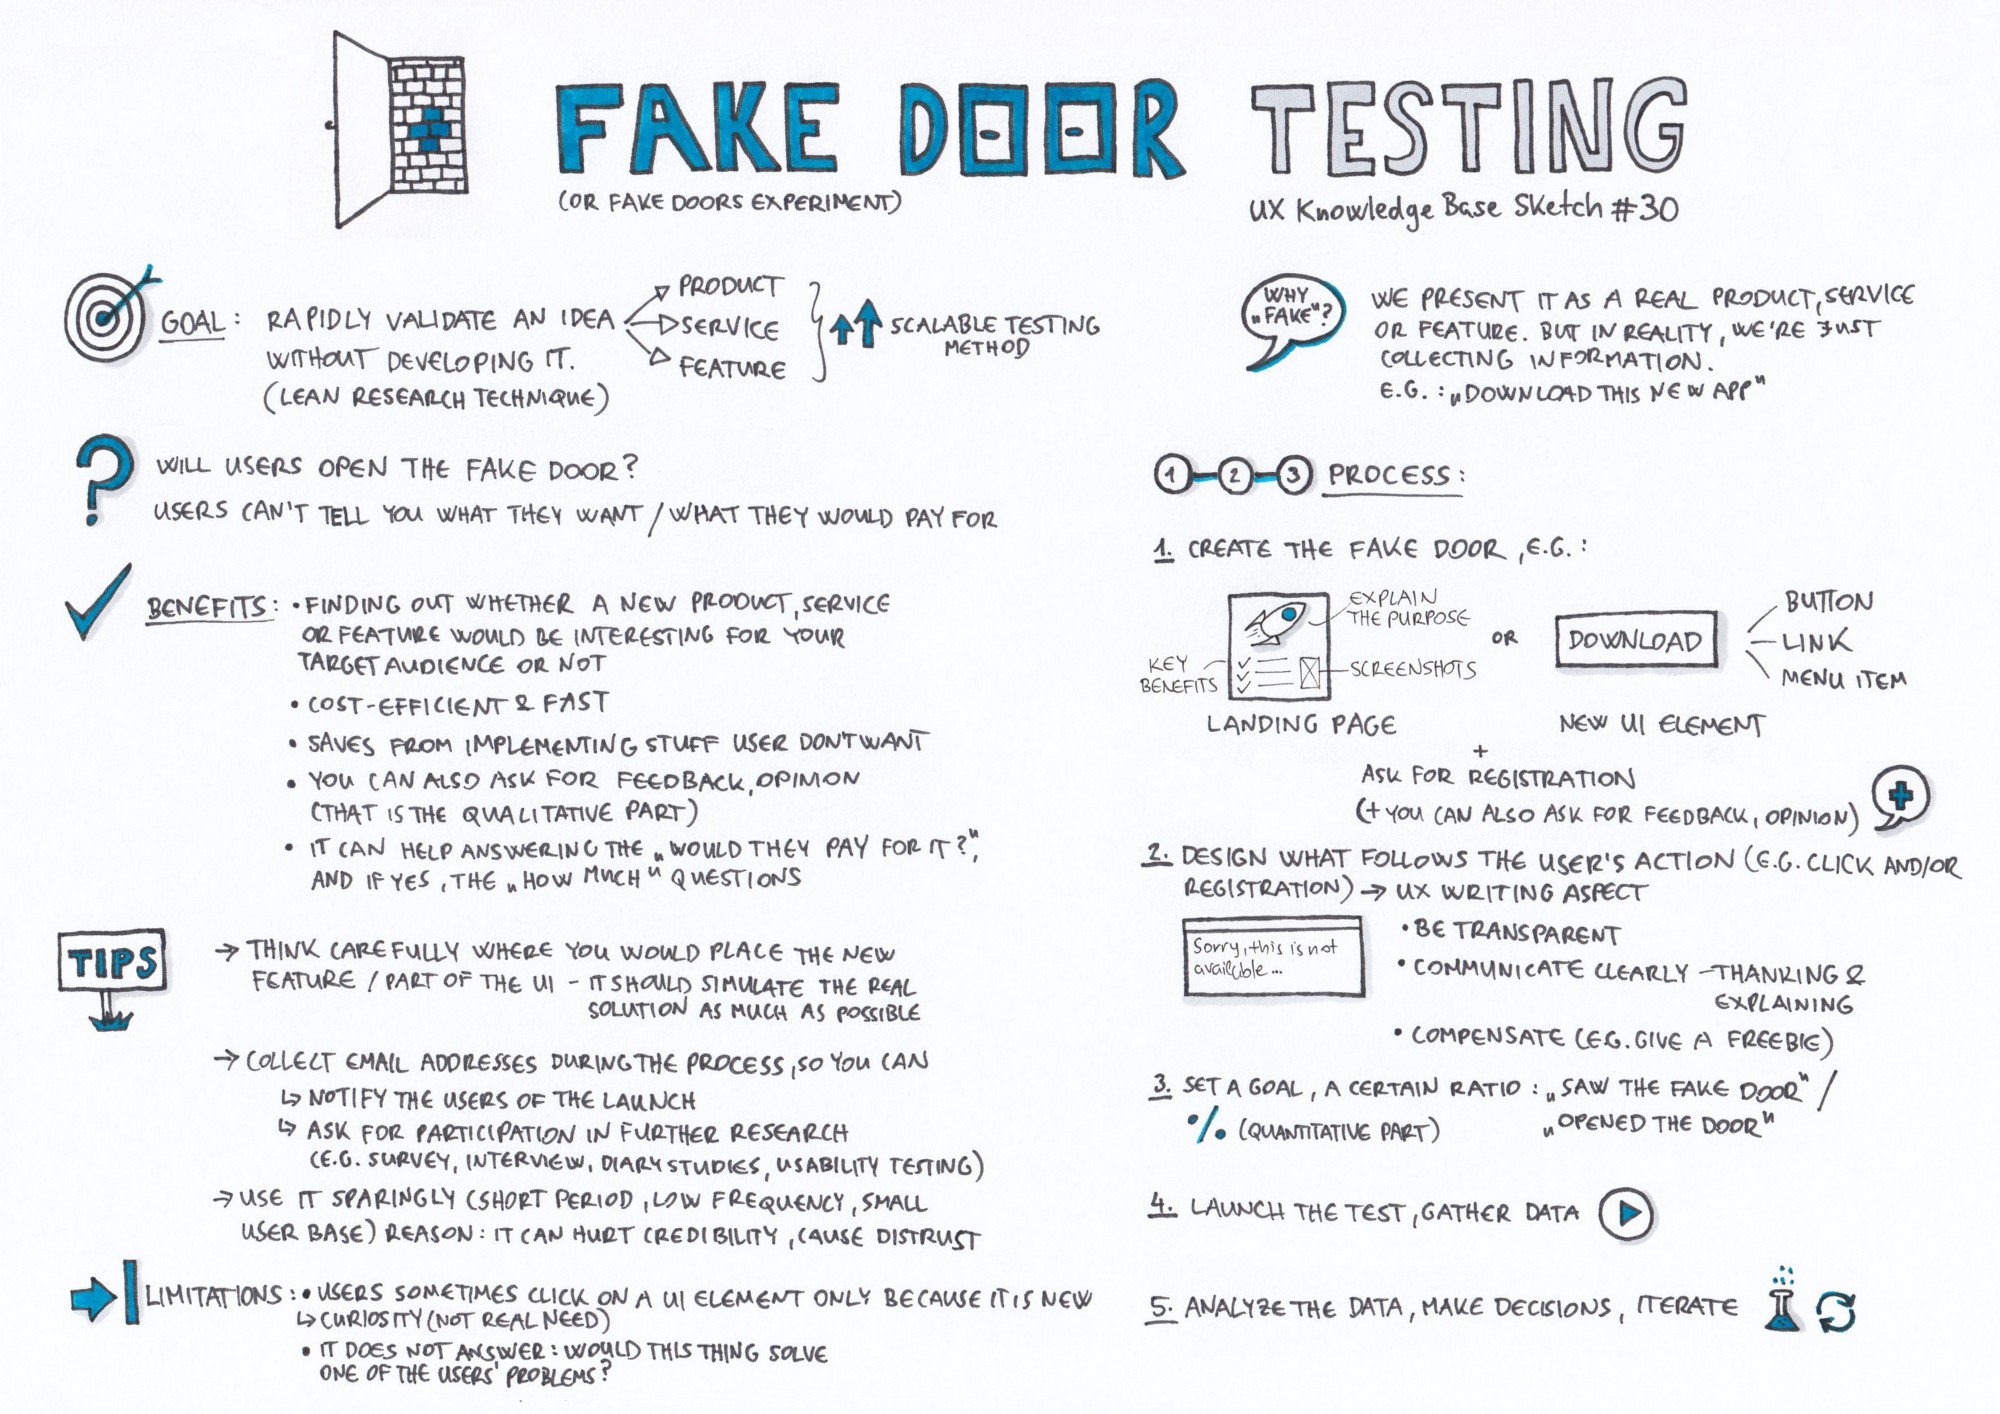 FAKE DOOR TESTING
(OR FAKE DOORS EXPERIMENT)
UX Knowledge Base Sketch #30
GOAL: RAPIDLY VALIDATE AN IDEA
WITHOUT DEVELOPING IT.
(LEAN RESEARCH TECHNIQUE)
PRODUCT
SERVICE
FEATURE
SCALABLE TESTING
METHOD
WHY
„FAKE"?
WE PRESENT IT AS A REAL PRODUCT, SERVICE
OR FEATURE. BUT IN REALITY, WE'RE JUST
COLLECTING INFORMATION.
E.G.: „DOWNLOAD THIS NEW APP"
?
WILL USERS OPEN THE FAKE DOOR?
USERS CAN'T TELL YOU WHAT THEY WANT / WHAT THEY WOULD PAY FOR
BENEFITS: • FINDING OUT WHETHER A NEW PRODUCT, SERVICE
OR FEATURE WOULD BE INTERESTING FOR YOUR
TARGET AUDIENCE OR NOT
• COST-EFFICIENT & FAST
• SAVES FROM IMPLEMENTING STUFF USER DON'T WANT
• YOU CAN ALSO ASK FOR FEEDBACK, OPINION
(THAT IS THE QUALITATIVE PART)
• IT CAN HELP ANSWERING THE „WOULD THEY PAY FOR IT?",
AND IF YES, THE „HOW MUCH" QUESTIONS
TIPS
→ THINK CAREFULLY WHERE YOU WOULD PLACE THE NEW
FEATURE / PART OF THE UI - IT SHOULD SIMULATE THE REAL
SOLUTION AS MUCH AS POSSIBLE
→ COLLECT EMAIL ADDRESSES DURING THE PROCESS, SO YOU CAN
↳ NOTIFY THE USERS OF THE LAUNCH
↳ ASK FOR PARTICIPATION IN FURTHER RESEARCH
(E.G. SURVEY, INTERVIEW, DIARY STUDIES, USABILITY TESTING)
→ USE IT SPARINGLY (SHORT PERIOD, LOW FREQUENCY, SMALL
USER BASE) REASON: IT CAN HURT CREDIBILITY, CAUSE DISTRUST
LIMITATIONS: • USERS SOMETIMES CLICK ON A UI ELEMENT ONLY BECAUSE IT IS NEW
↳ CURIOSITY (NOT REAL NEED)
• IT DOES NOT ANSWER: WOULD THIS THING SOLVE
ONE OF THE USERS' PROBLEMS?
1 2 3 PROCESS:
1. CREATE THE FAKE DOOR, E.G.:
EXPLAIN
THE PURPOSE
KEY
BENEFITS
SCREENSHOTS
LANDING PAGE
OR
DOWNLOAD
BUTTON
LINK
MENU ITEM
NEW UI ELEMENT
+
ASK FOR REGISTRATION
(+ YOU CAN ALSO ASK FOR FEEDBACK, OPINION)
2. DESIGN WHAT FOLLOWS THE USER'S ACTION (E.G. CLICK AND/OR
REGISTRATION) → UX WRITING ASPECT
Sorry, this is not
available...
• BE TRANSPARENT
• COMMUNICATE CLEARLY - THANKING &
EXPLAINING
• COMPENSATE (E.G. GIVE A FREEBIE)
3. SET A GOAL, A CERTAIN RATIO: „SAW THE FAKE DOOR" /
„OPENED THE DOOR"
% (QUANTITATIVE PART)
4. LAUNCH THE TEST, GATHER DATA
5. ANALYZE THE DATA, MAKE DECISIONS, ITERATE